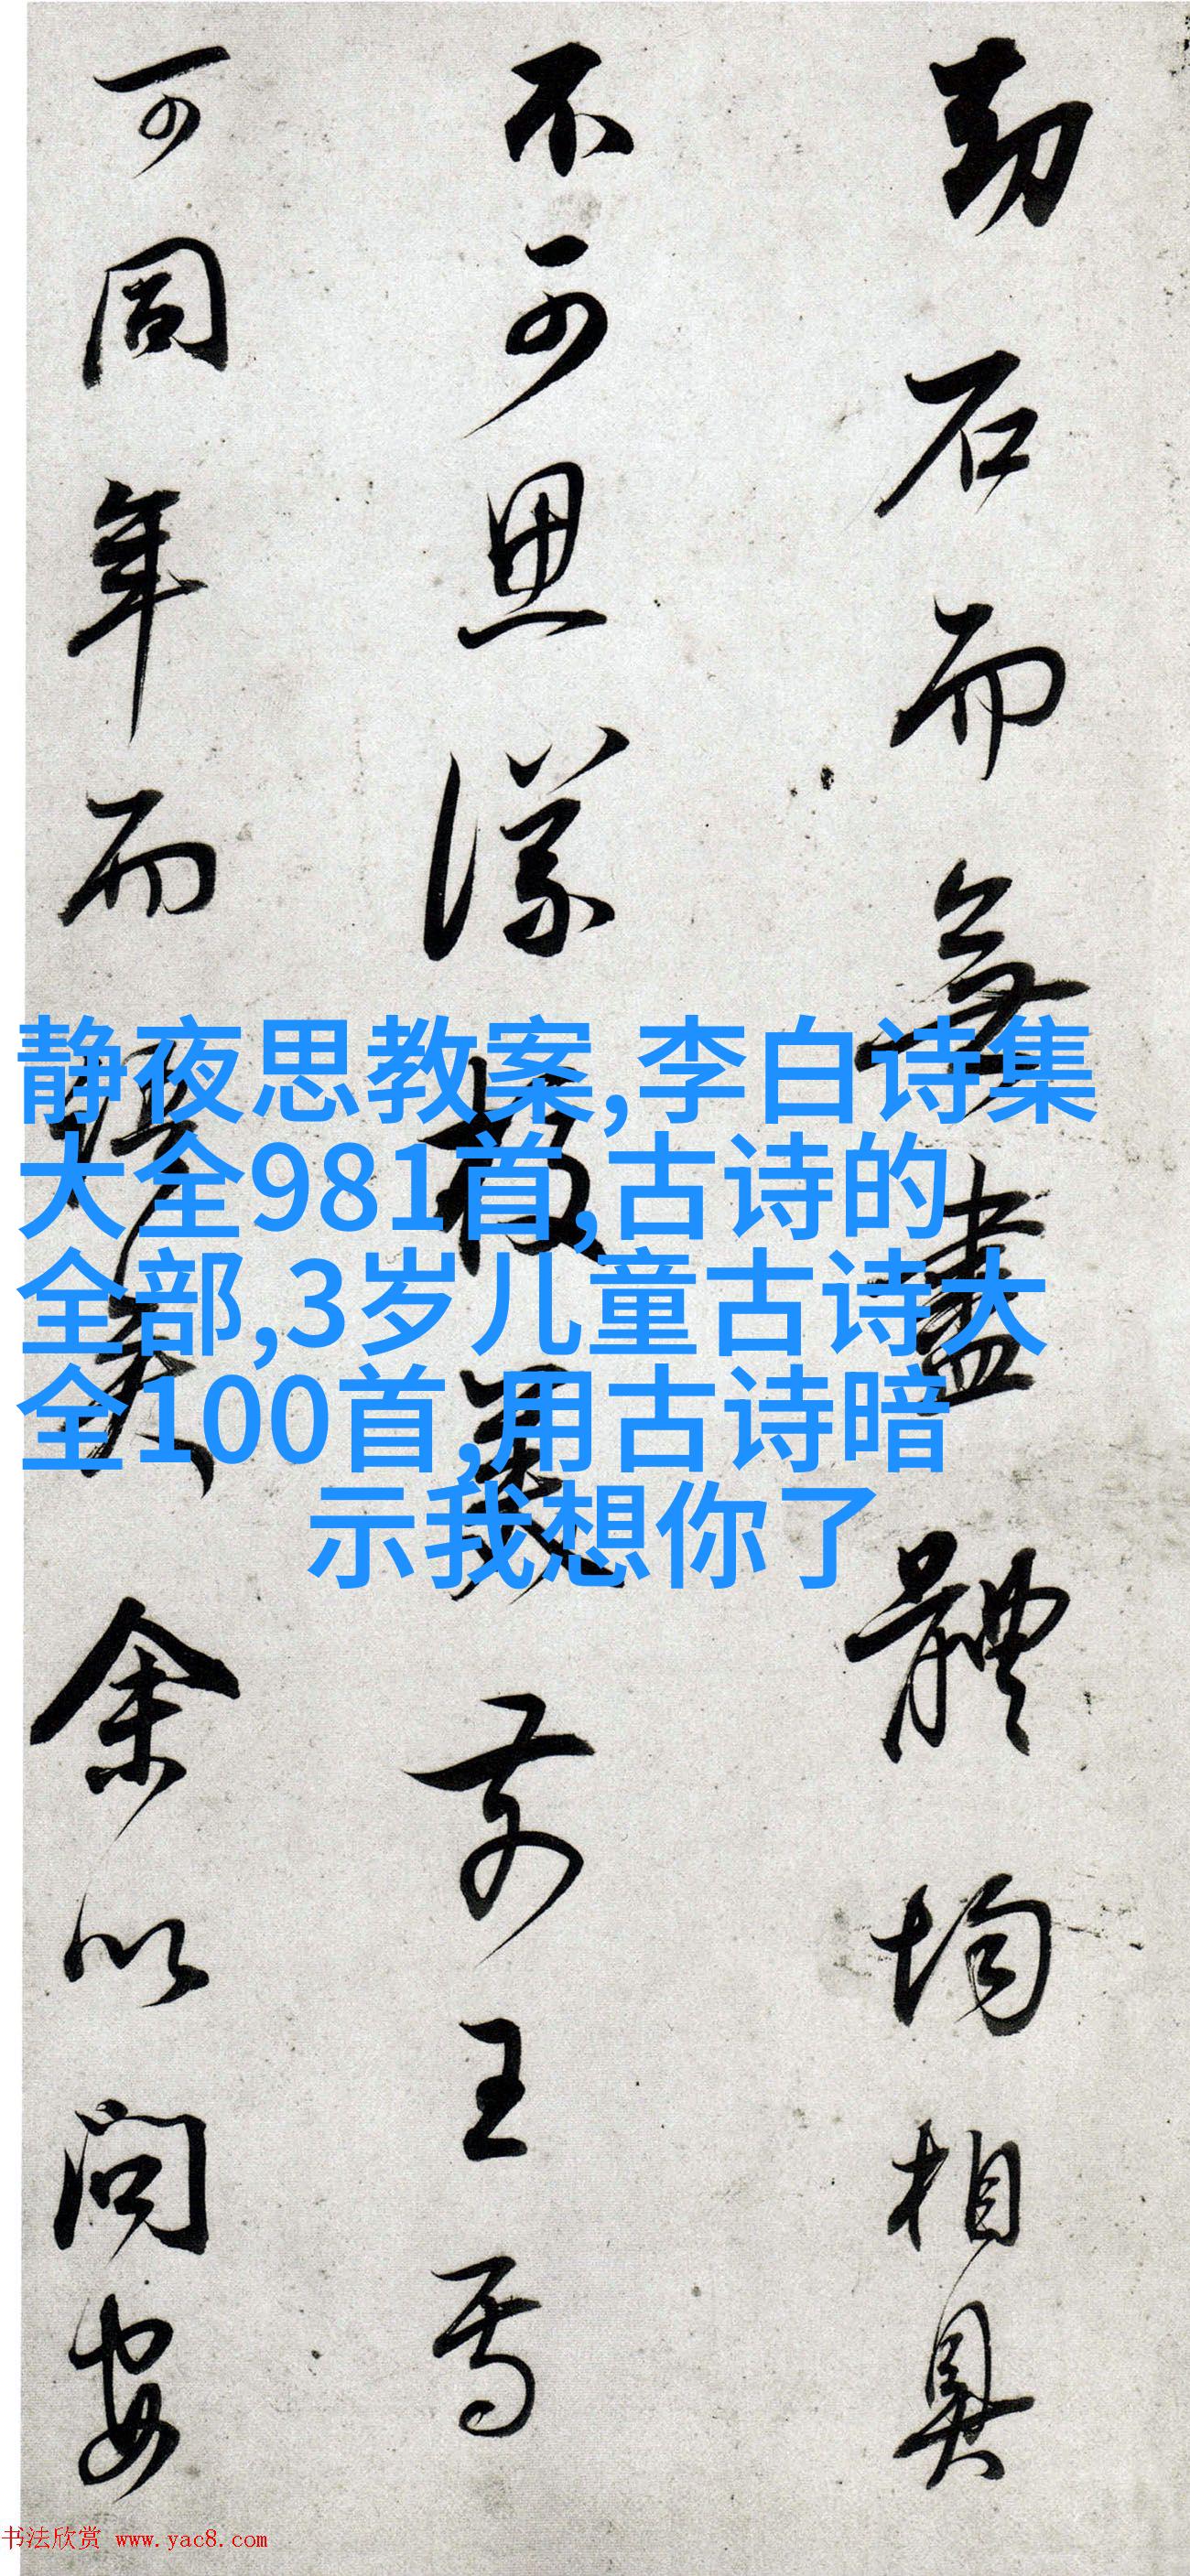 劫石而無盡體均相具
不可思議
前王焉
可同年而
余以問安
静夜思教案,李白诗集
大全981首,古诗的
全部,3岁儿童古诗大
全100首,用古诗暗
示我想你了
书法欣赏 www.yac8.com